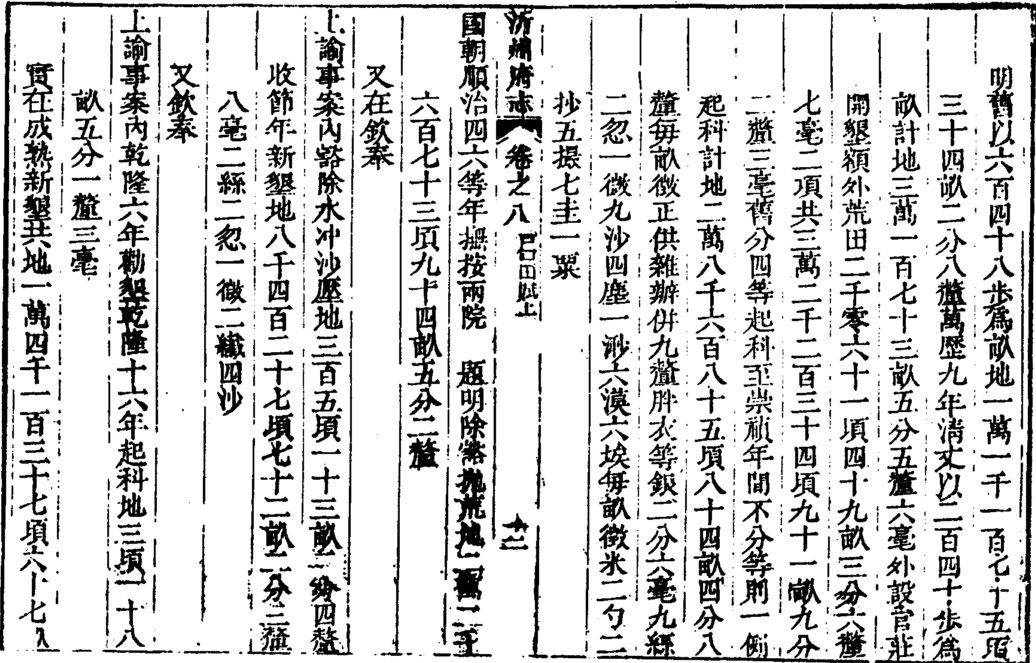 明舊以六百四十八步爲畝地一萬一千一百七十五頃
三十四畝二分八釐萬歷九年清丈以二百四十步爲
畝計地三萬一百七十三畝五分五釐六毫外設官莊
開墾額外荒田二千零六十一頃四十九畝三分六釐
七毫二項共三萬二千二百三十四頃九十一畝九分
二釐三毫舊分四等起科至崇禎年間不分等則一例
起科計地二萬八千六百八十五頃八十四畝四分八
釐每畝徵正供雜辦併九釐胖衣等銀二分六毫九絲
二忽一微九沙四塵一渺六漠六埃每畝徵米二勺二
抄五撮七圭一粟
沂州府志 卷之八 田賦上 十二
國朝順治四六等年撫按兩院 題明除豁拋荒地二萬二千
六百七十三頃九十四畝五分二釐
又在欽奉
上諭事案內豁除水冲沙壓地三百五頃一十三畝二分四釐
收節年新墾地八千四百二十七頃七十二畝二分三釐
八毫二絲二忽一微二纖四沙
又欽奉
上諭事案內乾隆六年勸墾乾隆十六年起科地三頃一十八
畝五分一釐三毫
實在成熟新墾共地一萬四千一百三十七頃六十七畝